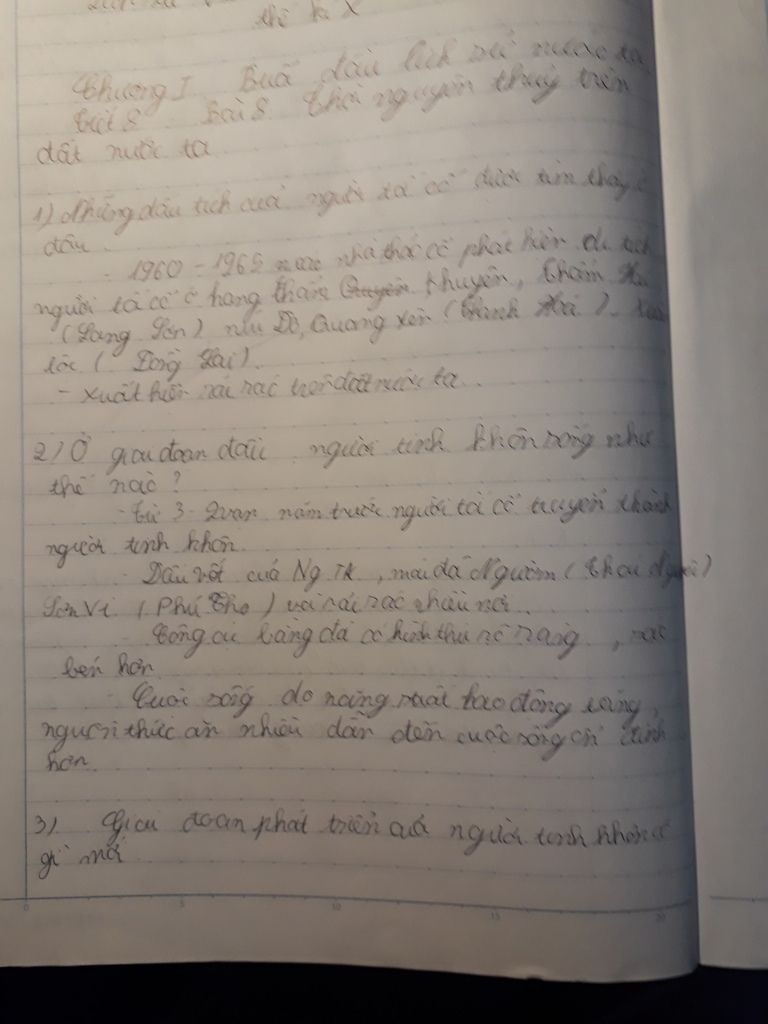 thế kỉ X
Chương I Buổi đầu lịch sử nước ta
Tiết 8 Bài 8 Thời nguyên thuỷ trên
đất nước ta
1) Những dấu tích của người tối cổ được tìm thấy ở
đâu.
- 1960 - 1965 nhà khảo cổ phát hiện di tích
người tối cổ ở hang Thẩm Khuyên, Thẩm Hai
(Lạng Sơn) núi Đọ, Quang Yên (Thanh Hoá). Xuân
lộc (Đồng Nai).
- Xuất hiện rải rác trên đất nước ta.
2) Ở giai đoạn đầu người tinh khôn sống như
thế nào?
- Từ 3-2 vạn năm trước người tối cổ chuyển thành
người tinh khôn.
- Dấu vết của Ng TK, mái đá Ngườm (Thái Nguyên)
Sơn Vi (Phú Thọ) và rải rác nhiều nơi.
- Công cụ bằng đá có hình thù rõ ràng,
bén hơn.
- Cuộc sống do năng suất lao động tăng,
nguồn thức ăn nhiều dẫn đến cuộc sống ổn định
hơn.
3) Giai đoạn phát triển của người tinh khôn có
gì mới